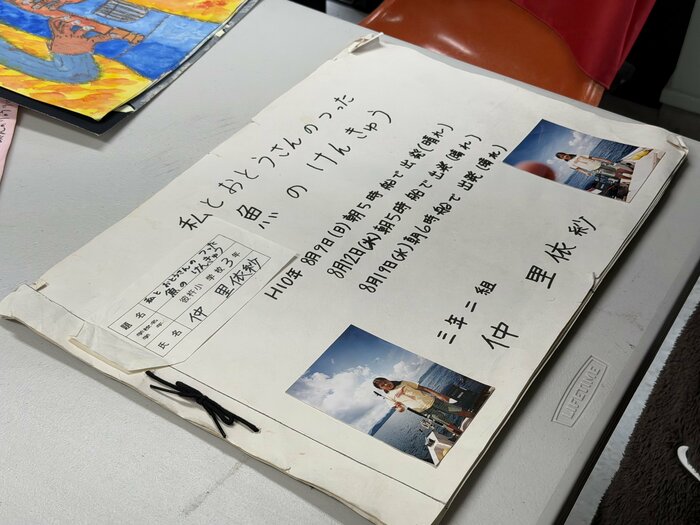 私とおとうさんのつった
魚のけんきゅう
H10年 8月9日(日)朝5時船で出発(晴れ)
8月12日(水)朝5時船で出発(晴れ)
8月19日(水)朝6時船で出発(晴れ)
三年二組
仲 里依紗
題名 私とおとうさんのつった
魚のけんきゅう
学校名 学年 小学校3年
氏名 仲 里依紗